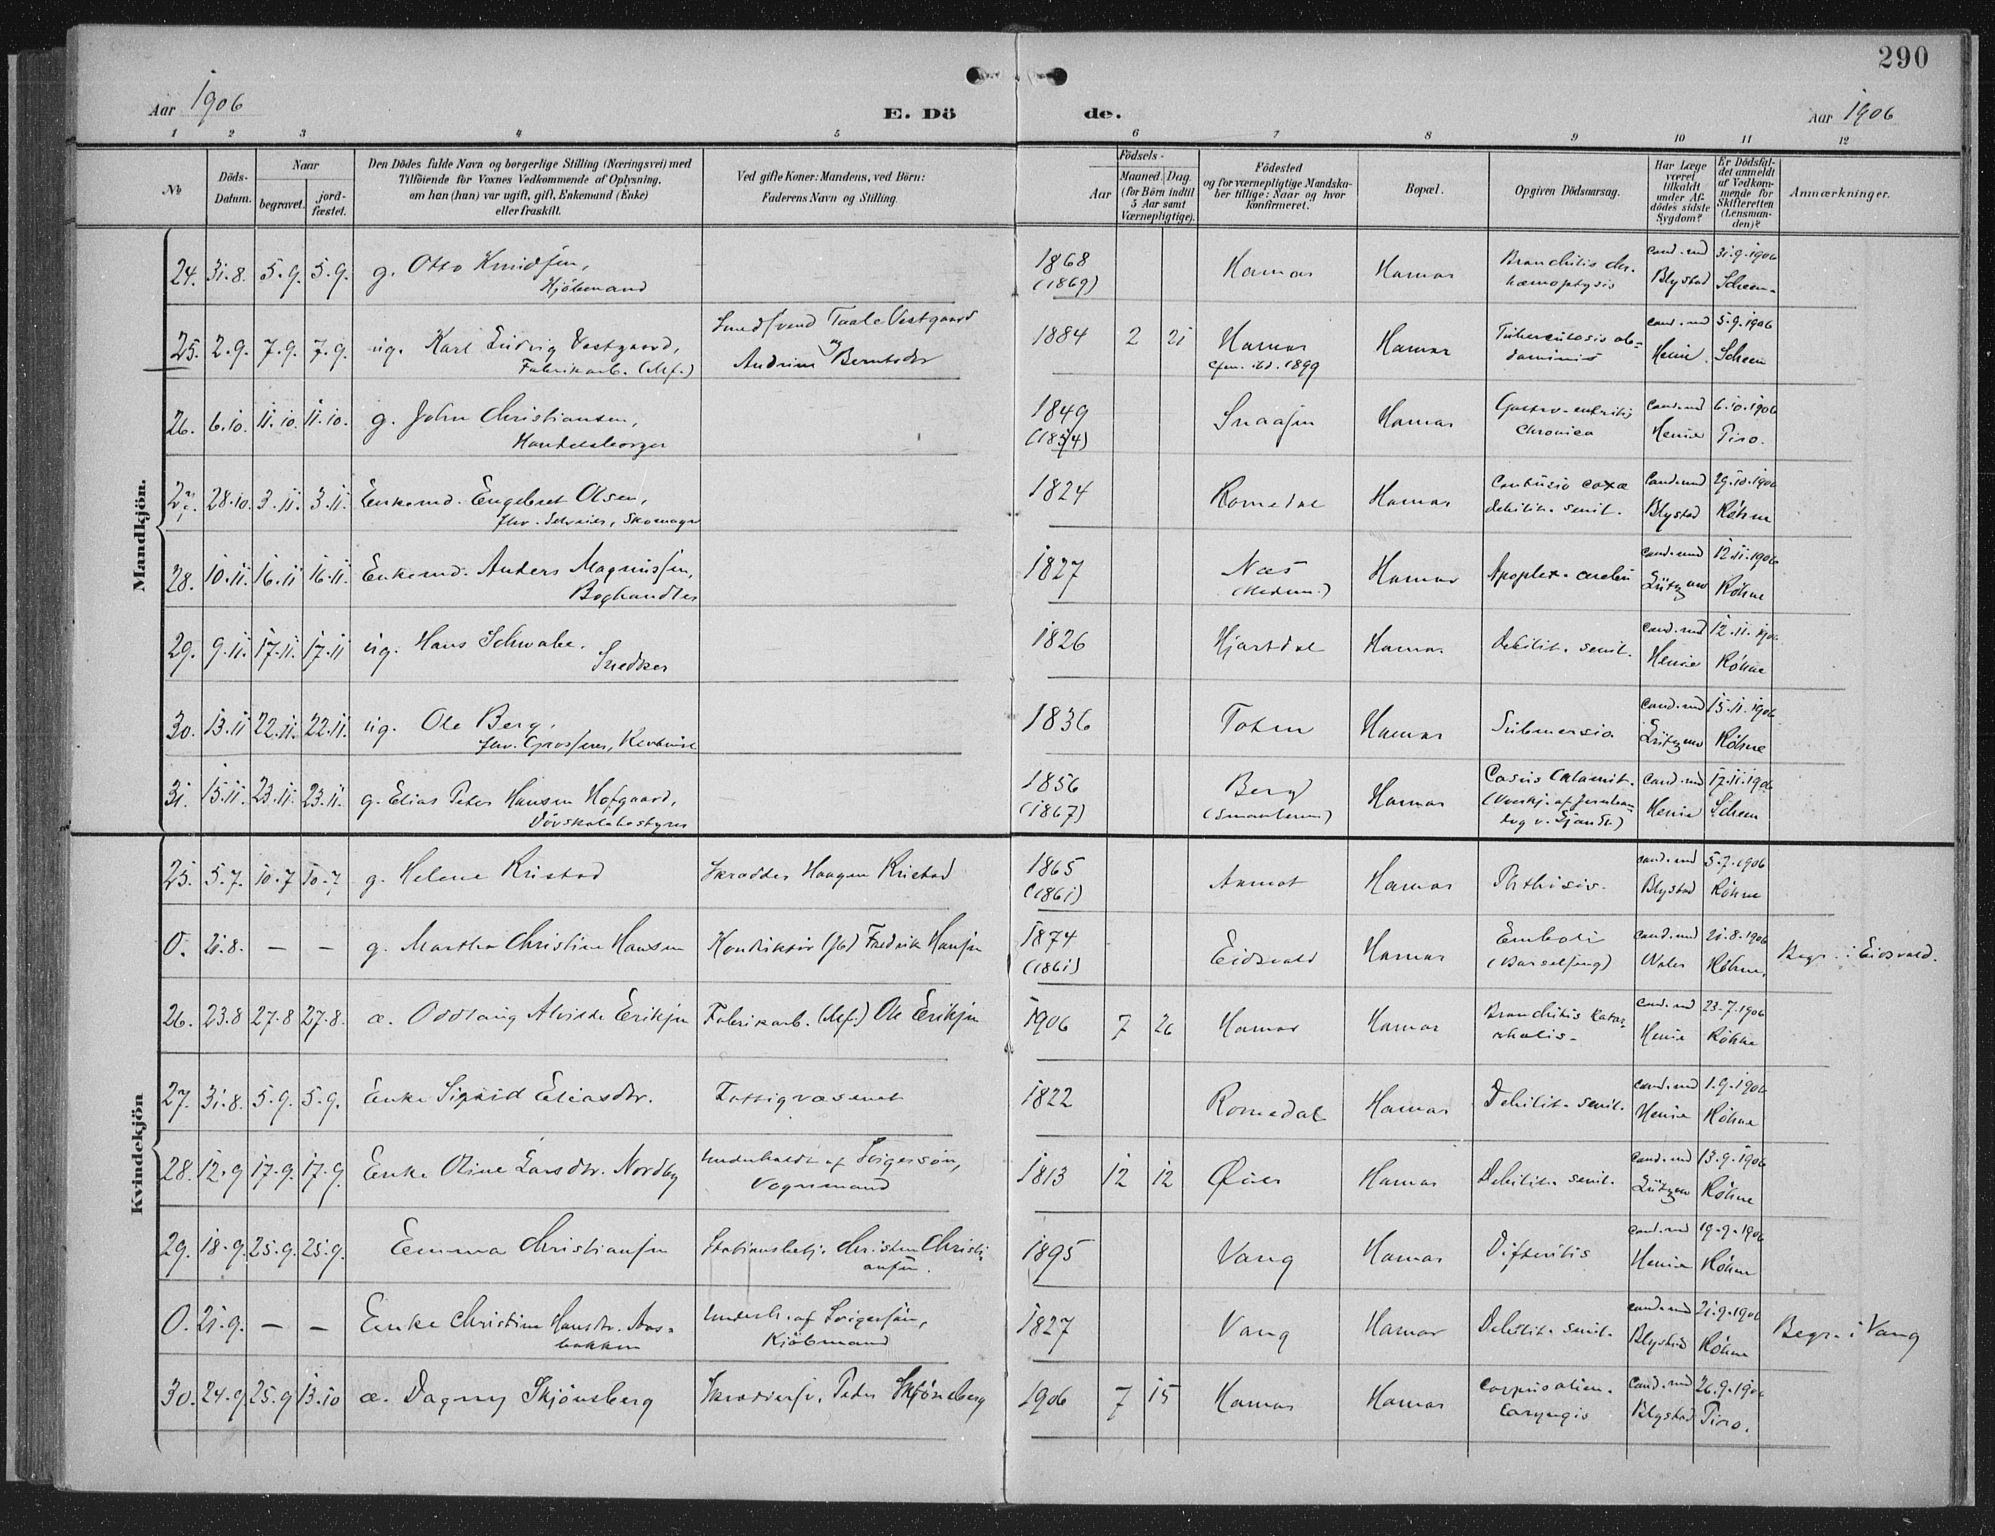 290
Aar 1906
E. Dö de.
Aar 1906
1 2 3 4 5 6 7 8 9 10 11 12
No
Döds-Datum.
Naar
begravet.
jord-fæstet.
Den Dödes fulde Navn og borgerlige Stilling (Næringsvei) med
Tilföiende for Voxnes Vedkommende af Oplysning,
om han (hun) var ugift, gift, Enkemand (Enke)
eller fraskilt.
Ved gifte Koner: Mandens, ved Börn:
Faderens Navn og Stilling.
Födsels-
Aar
Maaned. Dag.
(for Börn indtil
5 Aar samt
Værnepligtige).
Födested
og for værnepligtige Mandska-
ber tillige: Naar og hvor
konfirmeret.
Bopæl.
Opgiven Dödsaarsag.
Har Læge
været
tilkaldt
under Af-
dödes sidste
Sygdom?
Er Dödsfal-
det anmeldt
af Vedkom-
mende for
Skifteretten
(Lensman-
den)?
Anmærkninger.
Mandkjön.
24. 31.8. 5.9. 5.9. g. Otto Knudsen, 1868 Hamar Hamar Bronchitis chr. cand. med 31.9.1906
Kjöbmand (1869) hæmoptysis Blystad Scheen.
25. 2.9. 7.9. 7.9. ug. Karl Ludvig Vestgaard, Smedsvend Taale Vestgaard 1884 2 21 Hamar Hamar Tuberculosis ab- cand. med 5.9.1906
Fabrikarb. (Mf.) og Andrine Berntsdtr cfm. ibd. 1899 dominis Heme Scheen
26. 6.10. 11.10. 11.10. g. John Christiansen, 1849 Snaasen Hamar Gastro-enteritis cand. med 6.10.1906
Handelsborger (1854) chronica Heme Piro.
27. 28.10. 3.11. 3.11. Enkemd. Engebret Olsen, 1824 Romedal Hamar Contusio coxæ cand. med 29.10.1906
fhv. Selveier, Skomager debilit. senil. Blystad Röhne
28. 10.11. 16.11 16.11. Enkemd. Anders Magnussen, 1827 Næs Hamar Apoplex. cerebri cand. med 12.11.1906
Boghandler (Hedem.) Lützow Röhne
29. 9.11. 17.11. 17.11 ug. Hans Schwabe. 1826 Hjartdal Hamar Debilit. senil. cand. med 12.11.1906
Snedker Heme Röhne
30. 13.11 22.11. 22.11. ug. Ole Berg, 1836 Toten Hamar Submersio cand. med 15.11.1906
fhv. Grosserer, Lützow Röhne
31. 15.11. 23.11. 23.11. g. Elias Peter Hansen Hofgaard, 1856 Berg Hamar Casus calamit. cand. med 17.11.1906
Dövskolebestyrer (1867) (Smaalenene) Heme Scheen
Kvindekjön
25. 5.7. 10.7 10.7 g. Helene Kristad Skrædder Haagen Kristad 1865 Aamot Hamar Phthisis. cand. med 5.7.1906
(1861) Blystad Röhne
0. 21.8. — — g. Martha Christine Hansen Konduktör Fredrik Hansen 1874 Eidsvold Hamar Emboli cand. med 21.8.1906 Begr. i Eidsvold.
(1861) (Barselseng) Röhne,
26. 23.8 27.8 27.8. æ. Oddlaug Alvilde Eriksen Fabrikarb. (Mf.) Ole Eriksen 1906 7 26 Hamar Hamar Bronchitis katar- cand. med 23.7.1906
rhalis. Heme Röhne
27. 31.8. 5.9. 5.9. Enke Sigrid Eliasdtr. Fattigvæsenet 1822 Romedal Hamar Debilit. senil. cand. med 1.9.1906
Heme Röhne
28. 12.9 17.9 17.9. Enke Oline Larsdtr. Nordby Underholdt af Svigersön, 1813 12 12 Öier Hamar Debilit. senil. cand. med 13.9.1906
Vognmand Lützow Röhne
29. 18.9. 25.9. 25.9. Emma Christiansen Stationsbetj. Christen Christi- 1895 Vang Hamar Difteritis cand. med 19.9.1906
ansen. Heme Röhne
0. 21.9. — — Enke Christine Hansdtr. Aas- Underh. af Svigersön, 1827 Vang Hamar Debilit. senil. cand. med 21.9.1906 Begr. i Vang
bakken Kjöbmand Blystad Röhne
30. 24.9 25.9 13.10 æ. Dagny Skjönsberg Skræddersv. Peder Skjönsberg 1906 7 15 Hamar Hamar Corpus alien. cand. med 26.9.1906
laryngis Blystad Piro.